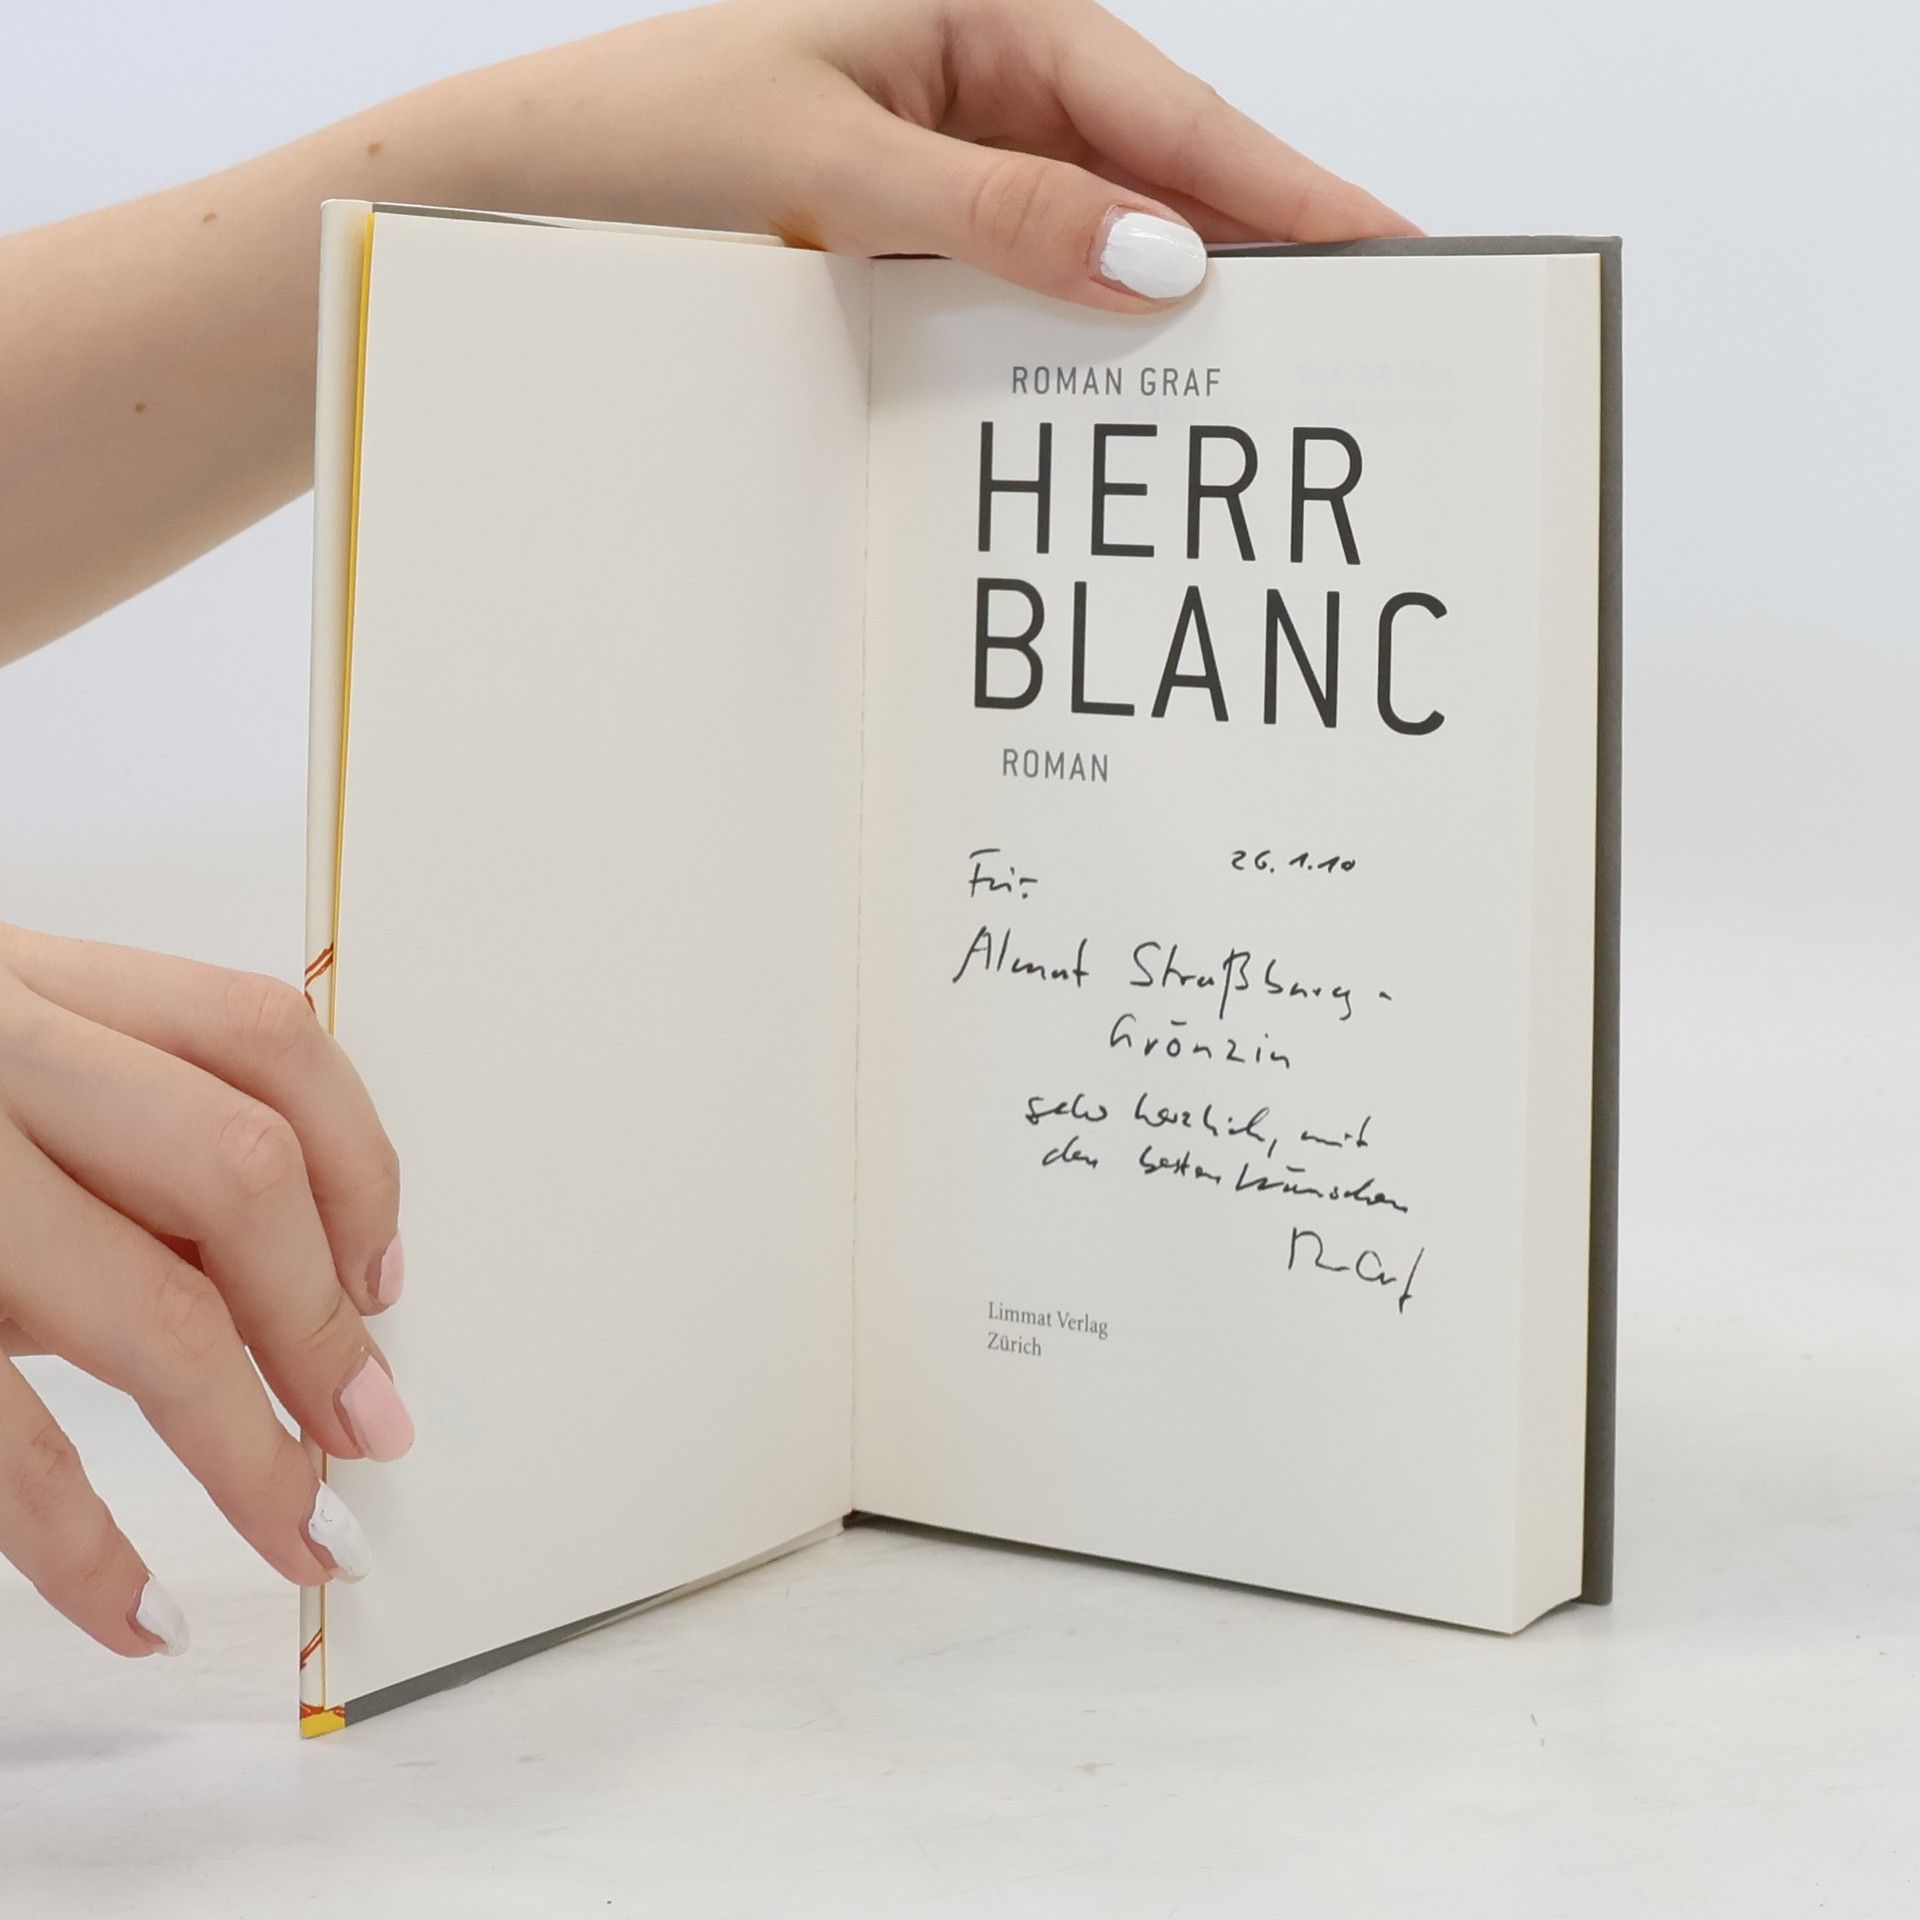 ROMAN GRAF
HERR
BLANC
ROMAN
26.1.10
Für
Almut Straßburg-
Grönzin
sehr herzlich, mit
den besten Wünschen
Limmat Verlag
Zürich